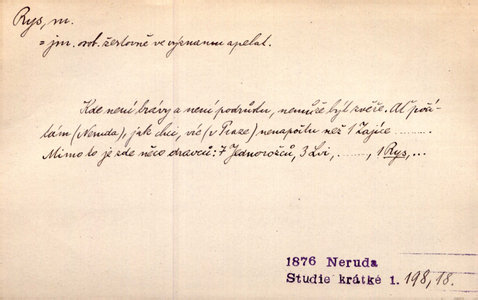 Rys, m.
= jm. osob. žertovně ve významu apelat.
Kde není trávy a není podrostu, nemůže být zvěře. Ať počí-
tám (Neruda), jak chci, víc (v Praze) nenapočtu než 1 Zajíce ..........
Mimo to je zde něco dravců: 7 Jednorožců, 3 Lvi, ........, 1 Rys, ...
1876 Neruda
Studie krátké 1. 198, 18.